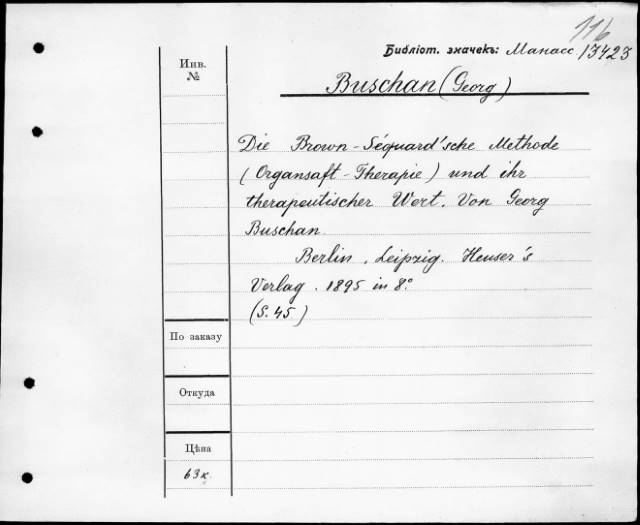 116
Библіот. значекъ: Манасс. 13423
Инв. №
Buschan (Georg)
Die Brown-Séquard'sche Methode
(Organsaft-Therapie) und ihr
therapeutischer Wert. Von Georg
Buschan.
Berlin. Leipzig. Heuser's
Verlag. 1895 in 8°
(S. 45)
По заказу
Откуда
Цѣна
63к.